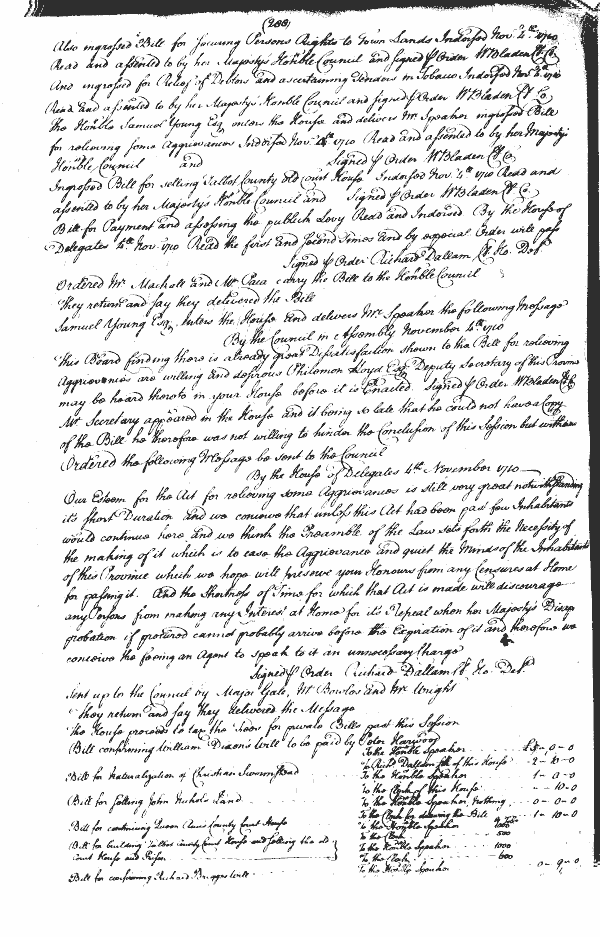 (288)
Also ingrossed Bill for securing Persons Rights to Town Lands Indorsed Nov. 4th 1710
Read and assented to by her Majestys Honble Council and signed p Order WBladen Cl Co
And ingrossed for Relief of Debtors and ascertaining Tenders in Tobaco Indorsed Nov 4 1710
Read and assented to by her Majestys Honble Council and signed p Order WBladen Cl Co
The Honble Samuel Young Esq enters the House and delivers Mr Speaker ingrossed Bill
for relieving some Aggrievances Indorsed Nov. 4th 1710 Read and assented to by her Majestys
Honble Council and Signed p Order WBladen Cl Co
Ingrossed Bill for selling Talbot County old Court House Indorsed Nov. 4th 1710 Read and
assented to by her Majestys Honble Council and Signed p Order WBladen Cl Co
Bill for Payment and assessing the publick Levy Read and Indorsed By the House of
Delegates 4th Nov. 1710 Read the first and second Times and by especial Order will pass
Signed p Order Richard Dallam Cl Ho. Del
Ordered Mr Macnoll and Mr Paca carry the Bill to the Honble Council
They return and say they delivered the Bill
Samuel Young Esq. enters the House and delivers Mr Speaker the following Message
By the Council in Assembly November 4th 1710
This Board finding there is already great Dissatisfaction shown to the Bill for relieving
Aggrievances are willing and desirous Philemon Loyd Esq Deputy Secretary of this Province
may be heard thereto in your House before it is Enacted. signed p Order WBladen Cl Co
Mr Secretary appeared in the House and it being so late that he could not have a Copy
of the Bill he therefore was not willing to hinder the Conclusion of this Session but withdrew
Ordered the following Message be sent to the Council
By the House of Delegates 4th November 1710
Our Esteem for the Act for relieving some Aggrievances is still very great notwithstanding
it's short Duration and we conceive that unless this Act had been past few Inhabitants
would continue here and we think the Preamble of the Law sets forth the Necessity of
the making of it which is to ease the Aggrievance and quiet the Minds of the Inhabitants
of this Province which we hope will preserve your Honours from any Censures at Home
for passing it. And the Shortness of Time for which that Act is made will discourage
any Persons from making any Interest at Home for its Repeal when her Majestys Disap
probation if procured cannot probably arrive before the Expiration of it and therefore we
conceive the feeing an Agent to speak to it an unnecessary Charge
Signed p Order Richard Dallam Cl Ho. Del
Sent up to the Council by Major Gale, Mr Bowles and Mr Wright
They return and say they delivered the Message
The House proceeds to tax the Fees for private Bills past this Session
Bill confirming William Dixons Will to be paid by Peter Harwood
To the Honble Speaker 0-0
To Richd Dallam Clk of this House 2-10-0
Bill for Naturalization of Christian To the Honble Speaker 1-0-0
To the Clerk of this House -10-0
Bill for selling John Nichols Land To the Honble Speaker Nothing 0-0-0
To the Clerk for drawing the Bill 1-10-0
Bill for continuing Queen Anns County Court House To the Honble Speaker 1000
To the Clerk 500
Bill for building County Court House and selling the old
Court House and Prison
To the Honble Speaker 1000
To the Clerk 600
Bill for confirming Richard Brigges Will To the Honble Speaker